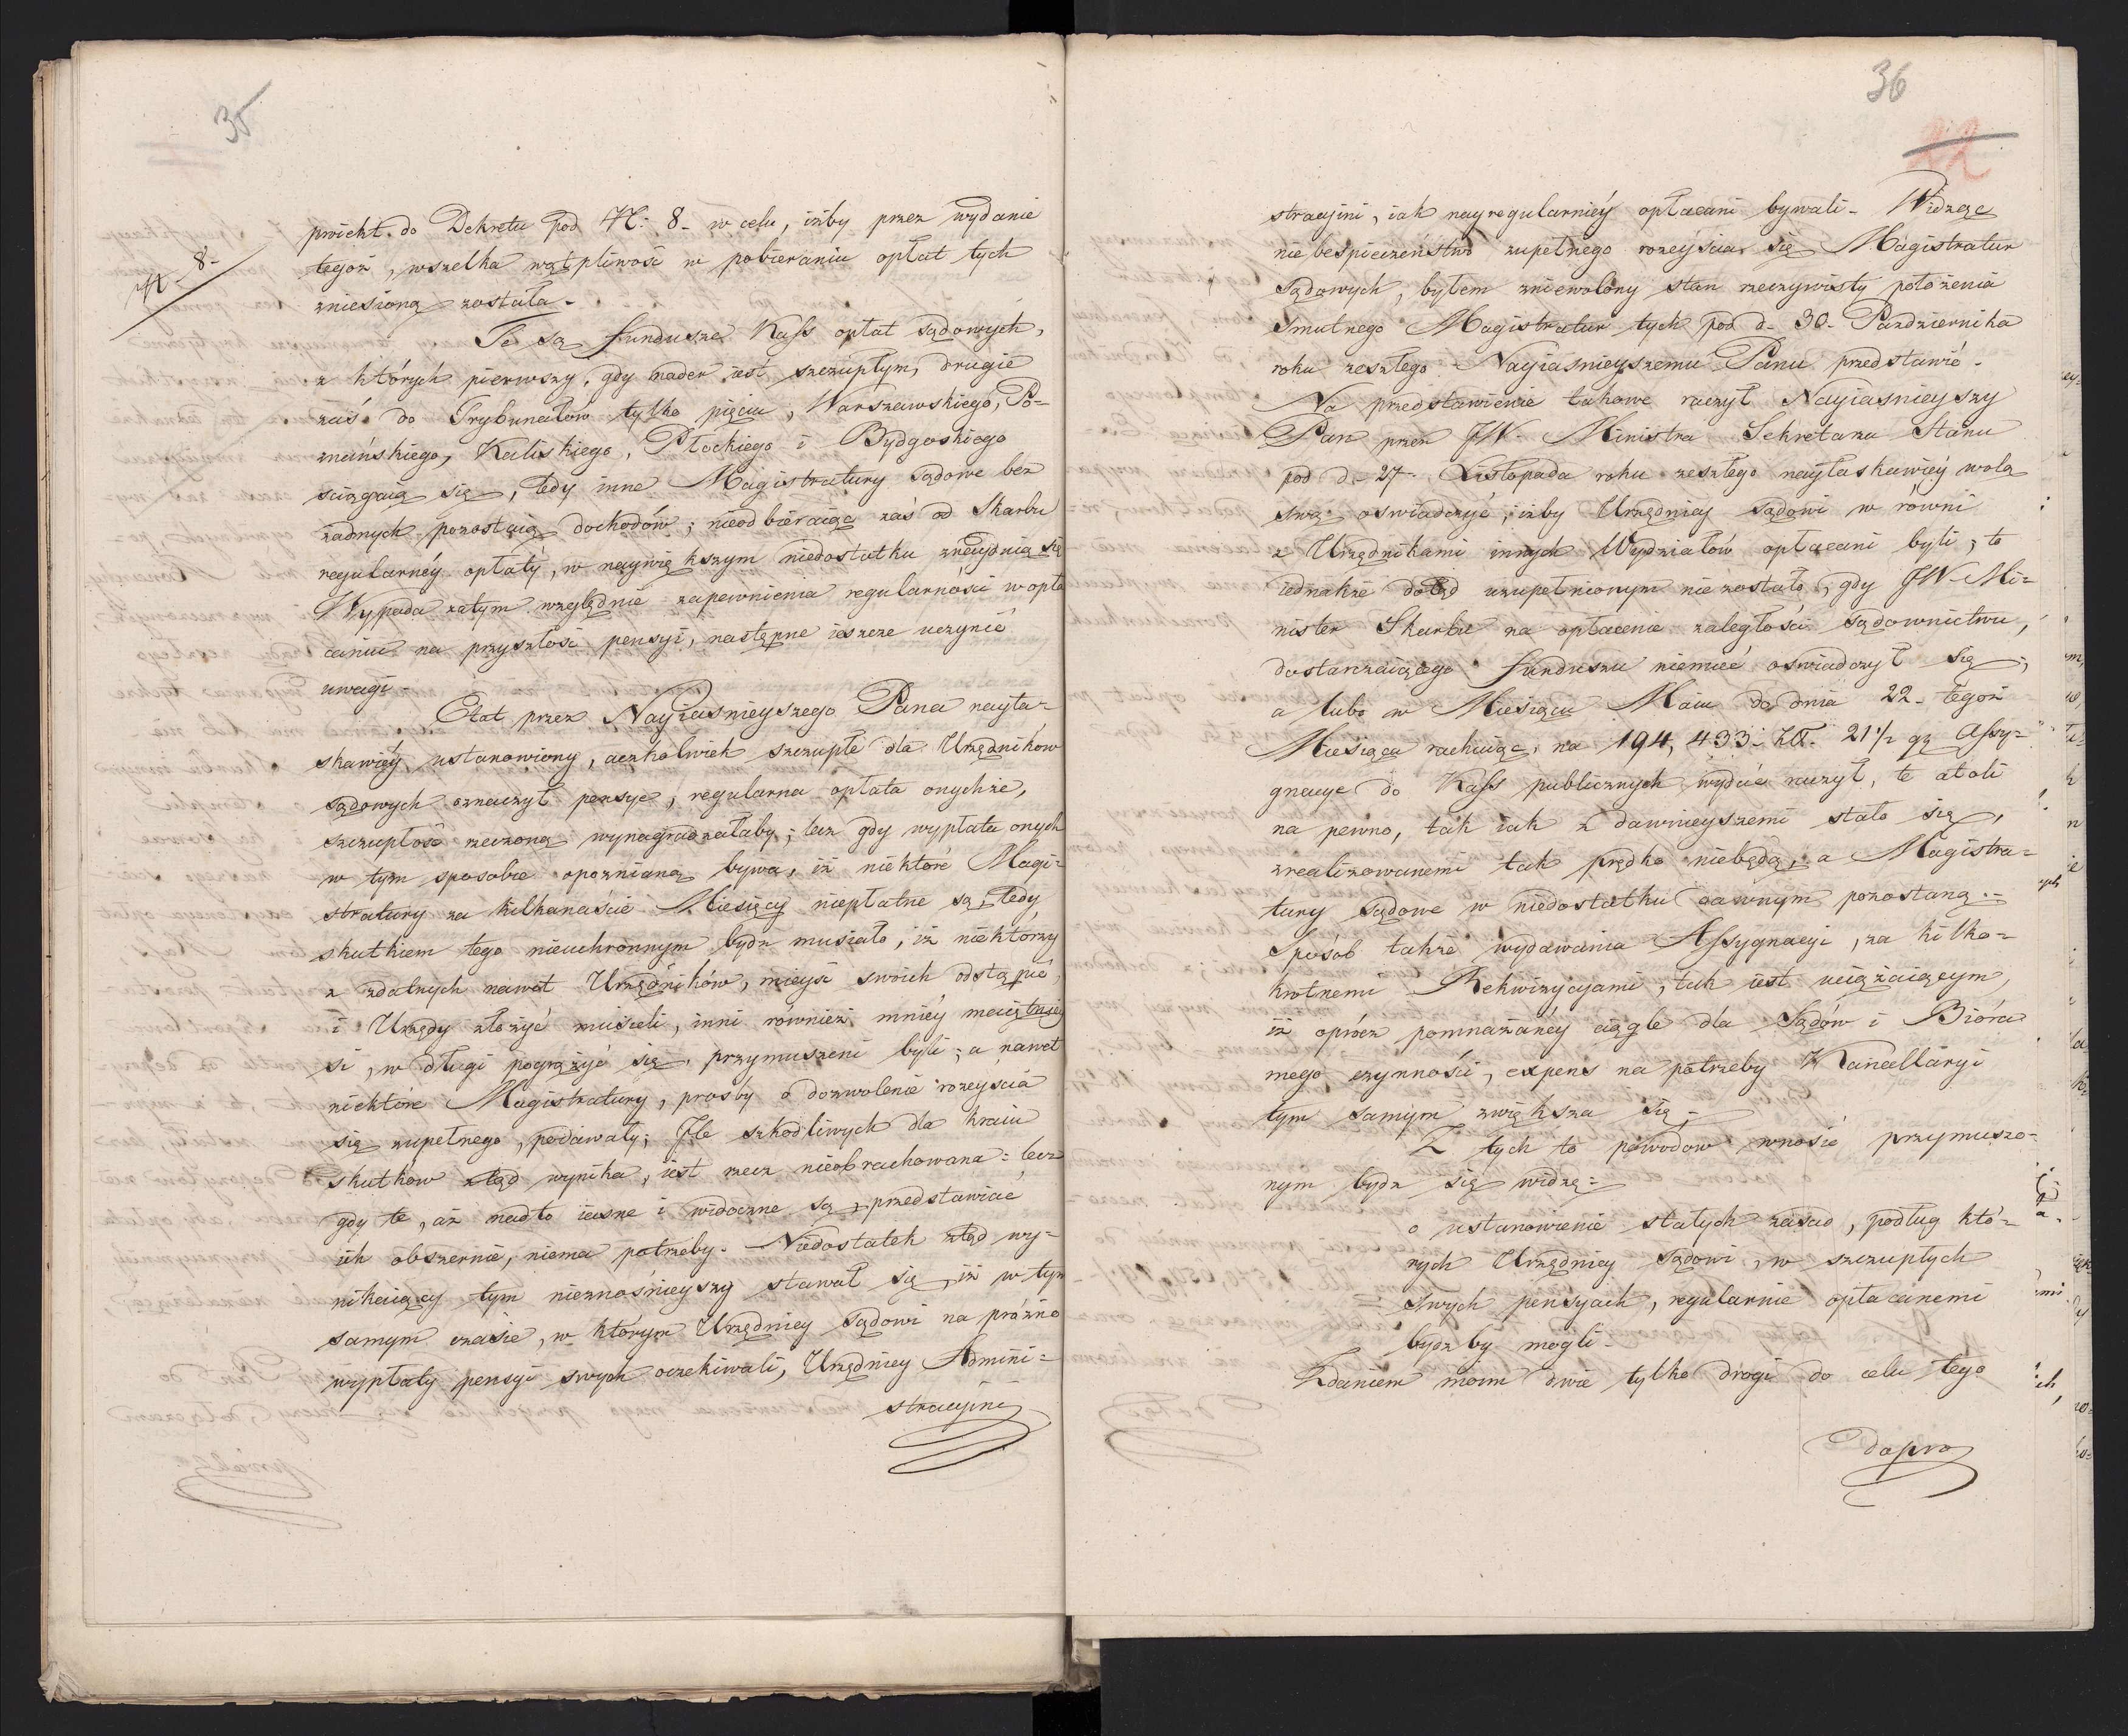 35
№ 8-
proiekt do Dekretu pod №: 8- w celu, iżby przez wydanie
tegoż, wszelka wątpliwość w pobieraniu opłat tych
zniesioną została-
Te są fundusze Kass opłat sądowych,
z których pierwszy, gdy nader iest szczupłym, drugie
zaś do Trybunałów tylko pięciu, Warszawskiego, Po=
znańskiego, Kaliskiego, Płockiego i Bydgoskiego
sciągaią się, tedy inne Magistratury Sądowe bez
żadnych pozostaią dochodów; nieodbieraiąc zaś od Skarbu
regularnéy opłaty, w naywiększym niedostatku znayduią się
Wypada zatym względnie zapewnienia regularności w opła
ceniu na przyszłość pensyi, następne ieszcze uczynić
uwagi-
Etat przez Nayiasnieyszego Pana nayła=
skawiéy ustanowiony, aczkolwiek szczupłe dla Urzędników
sądowych oznaczył pensye, regularna opłata onychże,
szczupłość rzeczoną wynagradzałaby; lecz gdy wypłata onych
w tym sposobie opoznianą bywa, iż niektóre Magi=
stratury za kilkanaście Miesięcy niepłatne są, tedy
skutkiem tego nieuchronnym bydz musiało, iż niektórzy
z zdatnych nawet Urzędników, mieysc swoich odstąpić,
i Urzędy złożyć musieli, inni również mniéy maiętnieý
si, w długi pogrążyć się, przymuszeni byli; a nawet
niektóre Magistratury, prosby o dozwolenie rozeyscia
się zupełnego, podawały; Ile szkodliwych dla kraiu
skutkow ztąd wynika, iest rzecz nieobrachowana: lecz
gdy te, aż nadto iasne i widoczne są, przedstawiać
ich obszernie, niema potrzeby- Niedostatek ztąd wy=
nikaiący tym nieznośnieyszy stawał się, iż w tym
samym czasie, w którym Urzędnicy Sądowi na próżno
wypłaty pensyi swych oczekiwali, Urzędnicy Admini=
stracyini
36
22
stracyini, iak nayregularniéy opłacani bywali- Widząc
niebespieczeństwo zupełnego rozeyścia się Magistratur
Sądowych, byłem zniewolony stan rzeczywisty położenia
smutnego Magistratur tych pod d- 30- Pazdziernika
roku zeszłego- Nayiasnieyszemu Panu przedstawić-
Na przedstawienie takowe raczył Nayiasnieyszy
Pan przez JW- Ministra Sekretarza Stanu
pod d- 27- Listopada roku zeszłego nayłaskawiéy wolą
swą oswiadczyć, iżby Urzędnicy Sądowi w równi
z Urzędnikami innych Wydziałów opłacani byli; to
iednakże dotąd uzupełnionym nie zostało, gdy JW- Mi=
nister Skarbu na opłacenie zaległości Sądownictwu,
dostarczaiącego funduszu niemieć oswiadczył się;
a lubo w Miesiącu Maiu do dnia 22- tegoż
Miesiąca rachuiąc, na 194,433- Zł- 21½ gr Assy=
gnacye do Kass publicznych wydać raczył, te atoli
na pewno, tak iak z dawnieyszemi stało się,
zrealizowanemi tak prędko niebędą, a Magistra=
tury Sądowe w niedostatku dawnym pozostaną-
Sposób także wydawania Assygnacyi, za kilko=
krotnemi Rekwizycyami, tak iest uciążaiącym,
iż oprócz pomnażanéy ciągle dla Sądów i Bióra
mego czynności, expens na potrzeby Kancellaryi
tym samym zwiększa się-
Z tych to powodow wnosić przymuszo=
nym bydz się widzę=
o ustanowienie stałych zasad, podług któ=
rych Urzędnicy Sądowi, w szczupłych
swych pensyach, regularnie opłacanemi
bydz by mogli-
Zdaniem moim dwie tylko drogi do celu tego
dopro